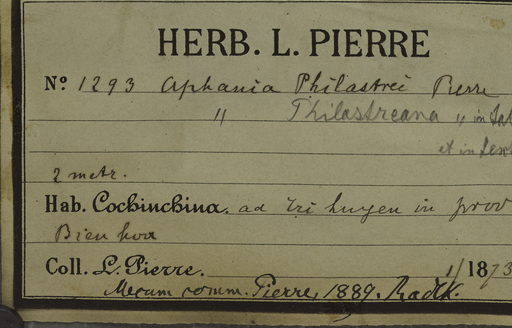 HERB. L. PIERRE
No. 1293 Aphania Philastrei Pierre
" Philastreana " in
et in
2 metr.
Hab. Cochinchina. ad Tri huyen in prov
Bien hoa
Coll. L. Pierre. 1/1873
Mecum comm. Pierre, 1889. Radlk.